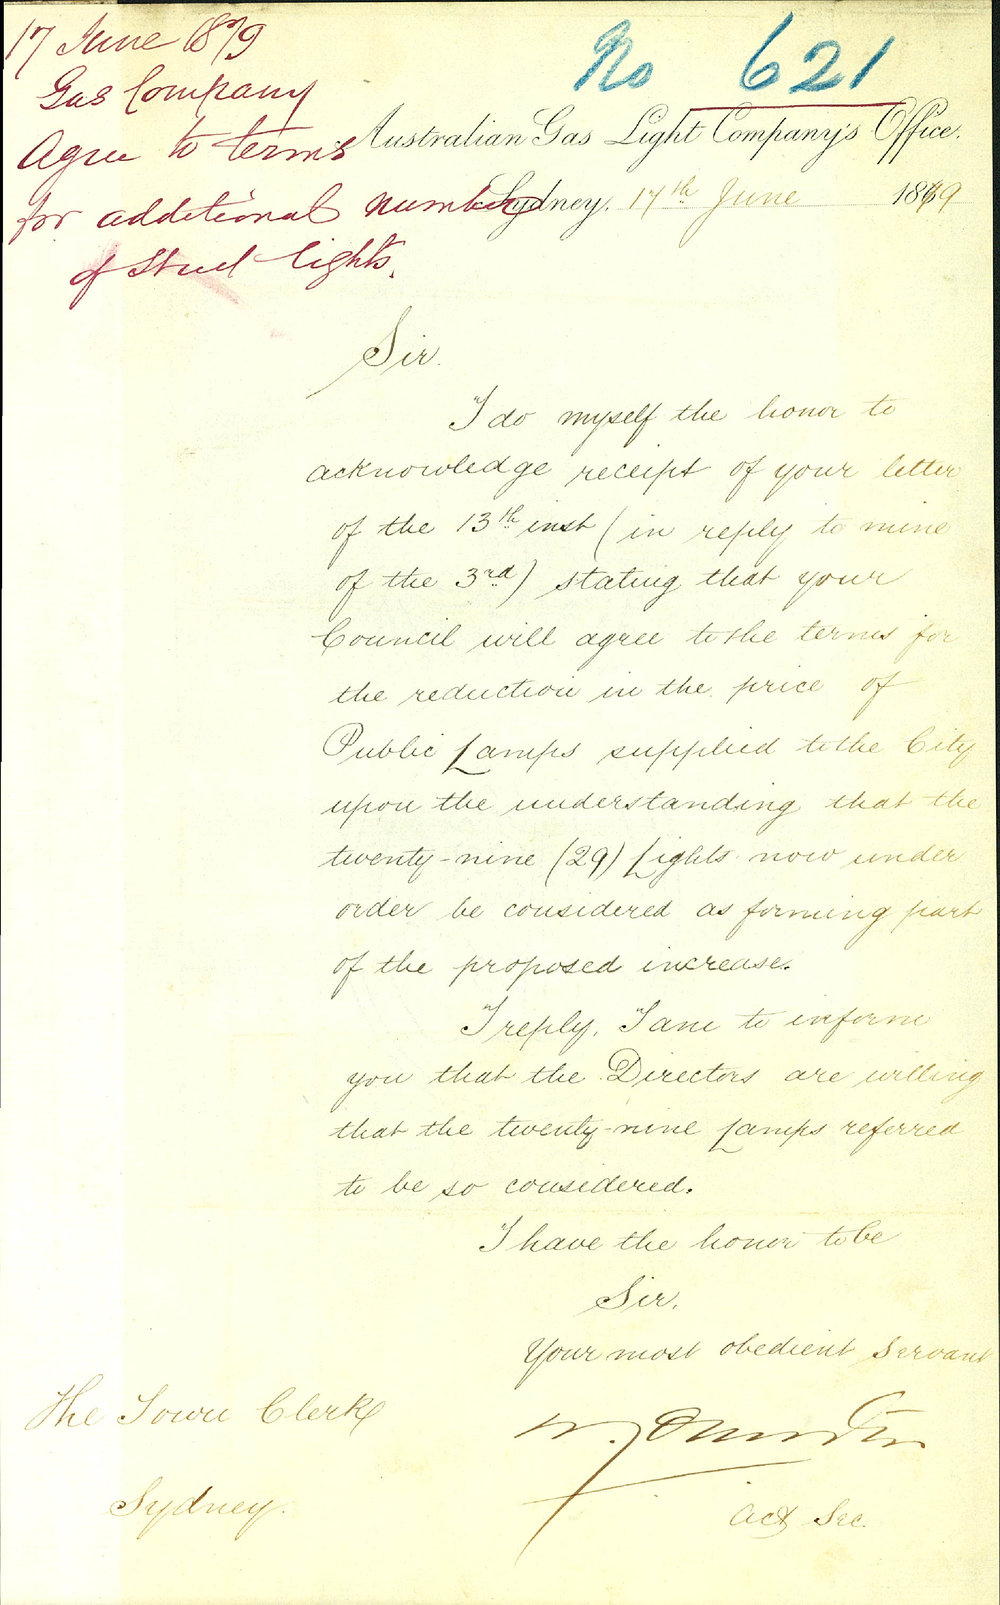 17 June 1879
Gas Company
Agree to terms
for additional number
of Street lights.
No 621
Australian Gas Light Company's Office.
Sydney. 17th June 1879
Sir.
I do myself the honor to
acknowledge receipt of your letter
of the 13th inst (in reply to mine
of the 3rd) stating that your
Council will agree to the terms for
the reduction in the price of
Public Lamps supplied to the City
upon the understanding that the
twenty-nine (29) Lights now under
order be considered as forming part
of the proposed increase.
I reply, I am to inform
you that the Directors are willing
that the twenty-nine Lamps referred
to be so considered.
I have the honor to be
Sir,
Your most obedient Servant
Act Sec.
The Town Clerk
Sydney.